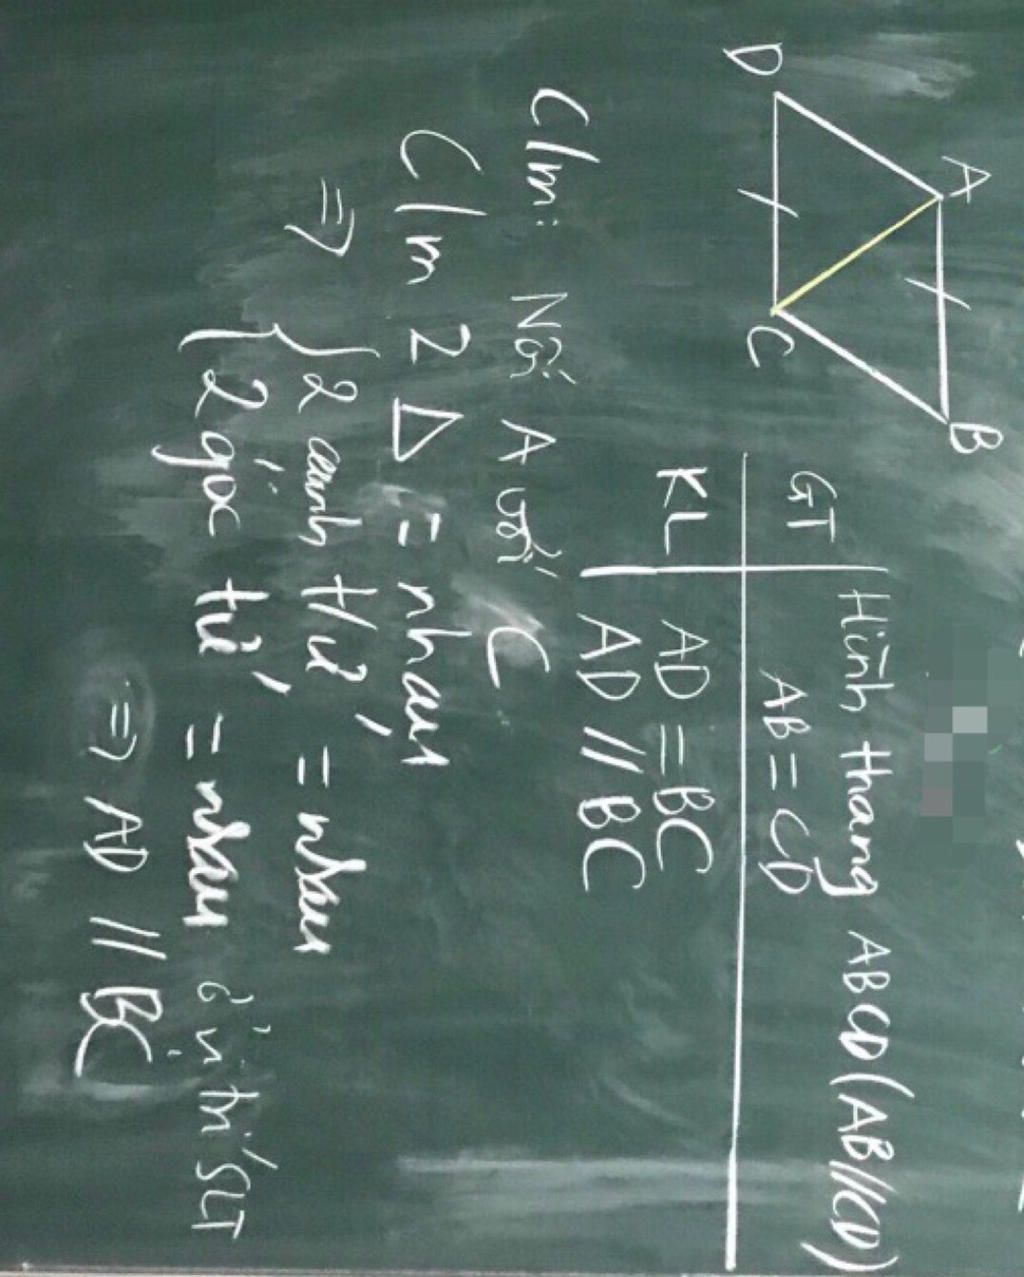 A
B
D
C
GT
Hình thang ABCD (AB//CD)
AB = CD
KL
AD = BC
AD // BC
C/m: Nối A với C
C/m 2 Δ = nhau
=> { 2 cạnh t/ứ = nhau
{ 2 góc t/ứ = nhau ở vị trí SLT
=> AD // BC